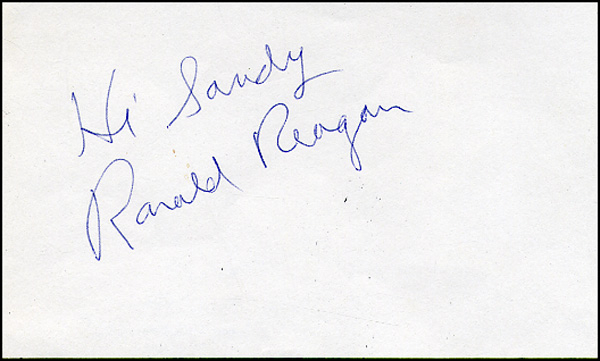 Hi Sandy
Ronald Reagan